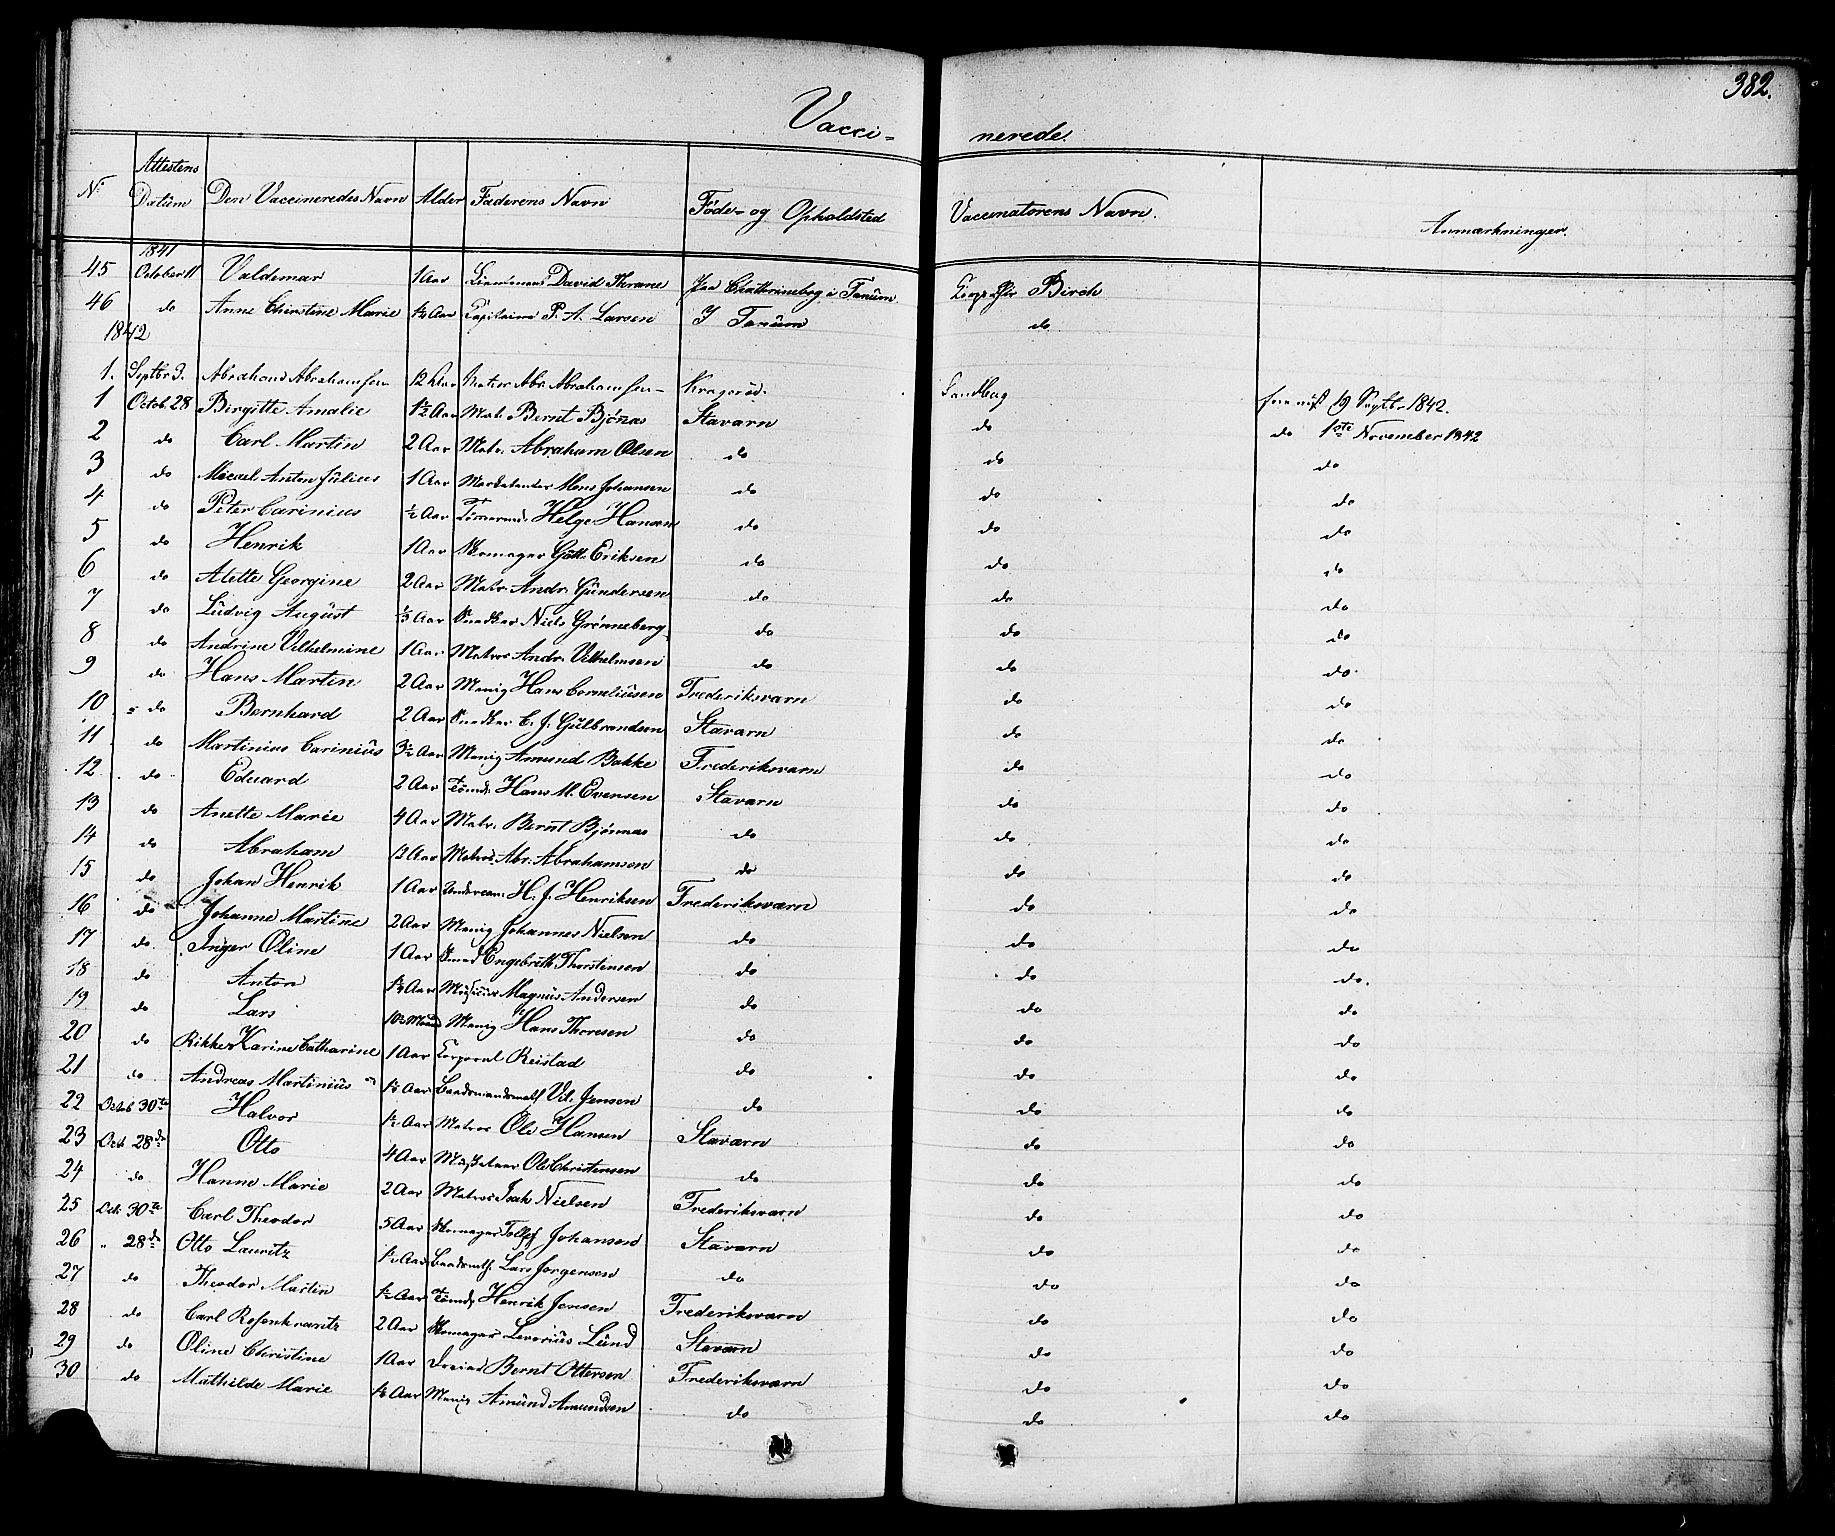 382.
Vacci- nerede.
No Attestens Datum Den Vaccineredes Navn Alder Faderens Navn Føde- og Opholdsted Vaccinatorens Navn. Anmærkninger.
1841
45 October 11 Valdemar 1 Aar David Thrane Paa i Tanum Birch
46 do Anne Christine Marie Aar Capitaine P. A. Larsen I Tanum do
1842
1. Septbr 3. Abraham Abrahamsen 12 Aar Matros Abr. Abrahamsen Sandberg 19 Septbr. 1842.
1 Octob. 28 Birgitte Amalie 1½ Aar Mat. Bernt Bjønnes Staværn do do 1ste November 1842
2 do Carl Martin 2 Aar Matr. Abraham Olsen do do do
3 do Micael Anton Julius 1 Aar Mons Johansen do do do
4 do Peter Carinius ½ Aar Tømermd. Helge Hansen do do do
5 do Henrik 1 Aar Skomager Gutt. Eriksen do do do
6 do Alette Georgine 2 Aar Matr. Andr. Gundersen do do do
7 do Ludvig August Aar Snedker Niels Grønneberg do do do
8 do Andrine Vilhelmine 1 Aar Matros Andr. Vilhelmsen do do do
9 do Hans Martin 2 Aar Menig Hans Corneliusen Frederiksværn do do
10 do Bernhard 2 Aar Snedker C. J. Gulbrandsen Staværn do do
11 do Martinius Carinius 3½ Aar Menig Amund Bakke Frederiksværn do do
12 do Eduard 2 Aar Tømd. Hans M. Evensen Staværn do do
13 do Anette Marie 4 Aar Matr. Bernt Bjønnes do do do
14 do Abraham 12 Aar Matros Abr. Abrahamsen do do do
15 do Johan Henrik 1 Aar H. J. Henriksen Frederiksværn do do
16 do Johanne Martine 2 Aar Menig Johannes Nielsen do do do
17 do Inger Oline 1 Aar Smed Engebreth Thorstensen do do do
18 do Anton Aar Musicus Magnus Andersen do do do
19 do Lars 10 Maand Menig Hans Thoresen do do do
20 do Rikke Karine Catharine 1 Aar Corporal Reistad do do do
21 do Andreas Martinius Aar Vil. Jensen do do do
22 Octob 30te Halvor 1½ Aar Matros Ole Hansen Staværn do do
23 Oct. 28de Otto 4 Aar Ole Christensen do do do
24 do Hanne Marie 2 Aar Matros Isak Nielsen Frederiksværn do do
25 Oct. 30te Carl Theodor 5 Aar Skomager Tollef Johansen Staværn do do
26 " 28de Otto Lauritz 1½ Aar Lars Jorgensen do do do
27 do Theodor Martin 1½ Aar Tømd. Henrik Jensen Frederiksværn do do
28 do Carl Rosenkrantz 2 Aar Skomager Severius Lund Staværn do do
29 do Oline Christine 1 Aar Dreier Bernt Ottersen Frederiksværn do do
30 do Mathilde Marie Aar Menig Amund Amundsen do do do